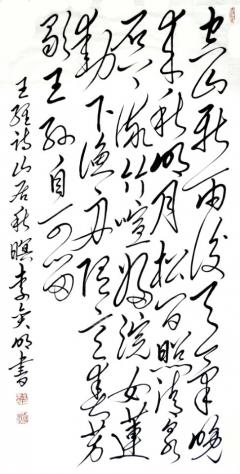 空山新雨後天氣晚
来秋明月松間照清泉
石上流竹喧歸浣女蓮
動下漁舟隨意春芳
歇王孫自可留
王維詩山居秋暝李明書